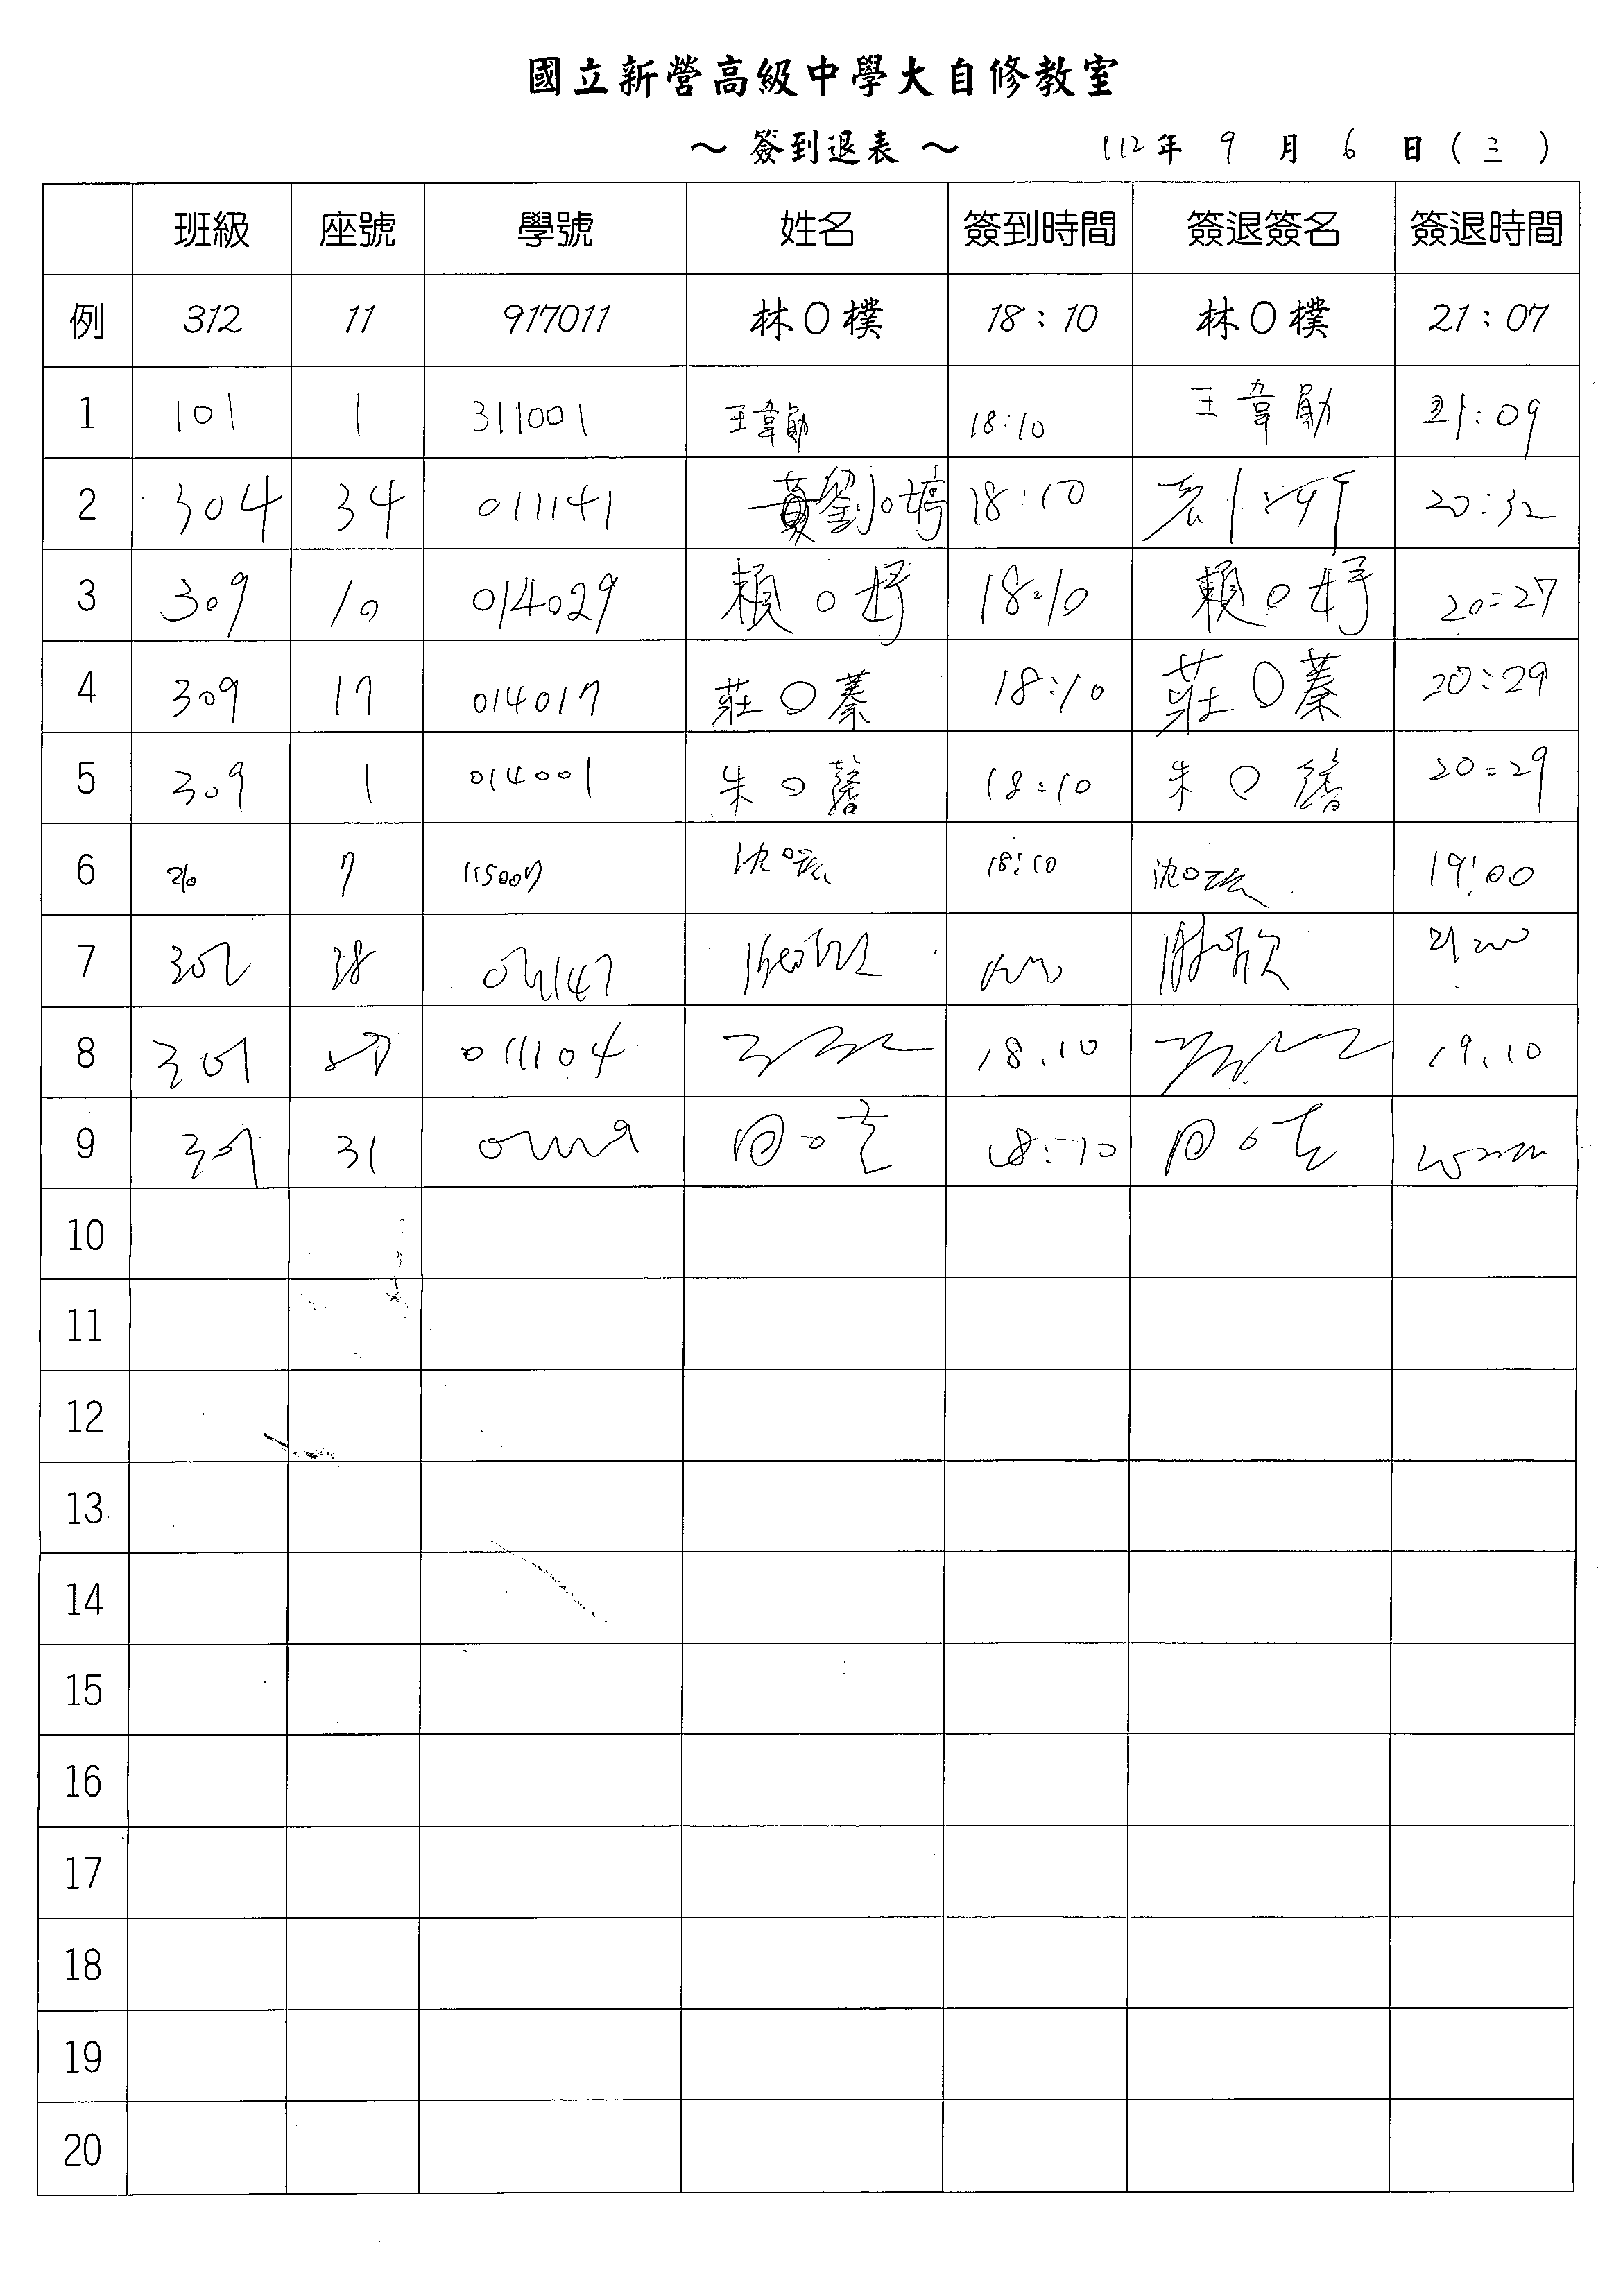 國立新營高級中學大自修教室
～ 簽到退表 ～ 112年 9 月 6 日 ( 三 )
班級 座號 學號 姓名 簽到時間 簽退簽名 簽退時間
例 312 11 917011 林〇樸 18:10 林〇樸 21:07
1 101 1 311001 王韋勛 18:10 王韋勛 21:09
2 304 34 011141 劉〇婷 18:10 20:32
3 309 10 014029 賴〇妤 18:10 賴〇妤 20:27
4 309 17 014017 莊〇蓁 18:10 莊〇蓁 20:29
5 309 1 014001 朱〇馨 18:10 朱〇馨 20:29
6 210 7 115007 沈〇 18:10 沈〇 19:00
7 302 38
8 011104 18.10 19.10
9 31 18:10
10
11
12
13
14
15
16
17
18
19
20